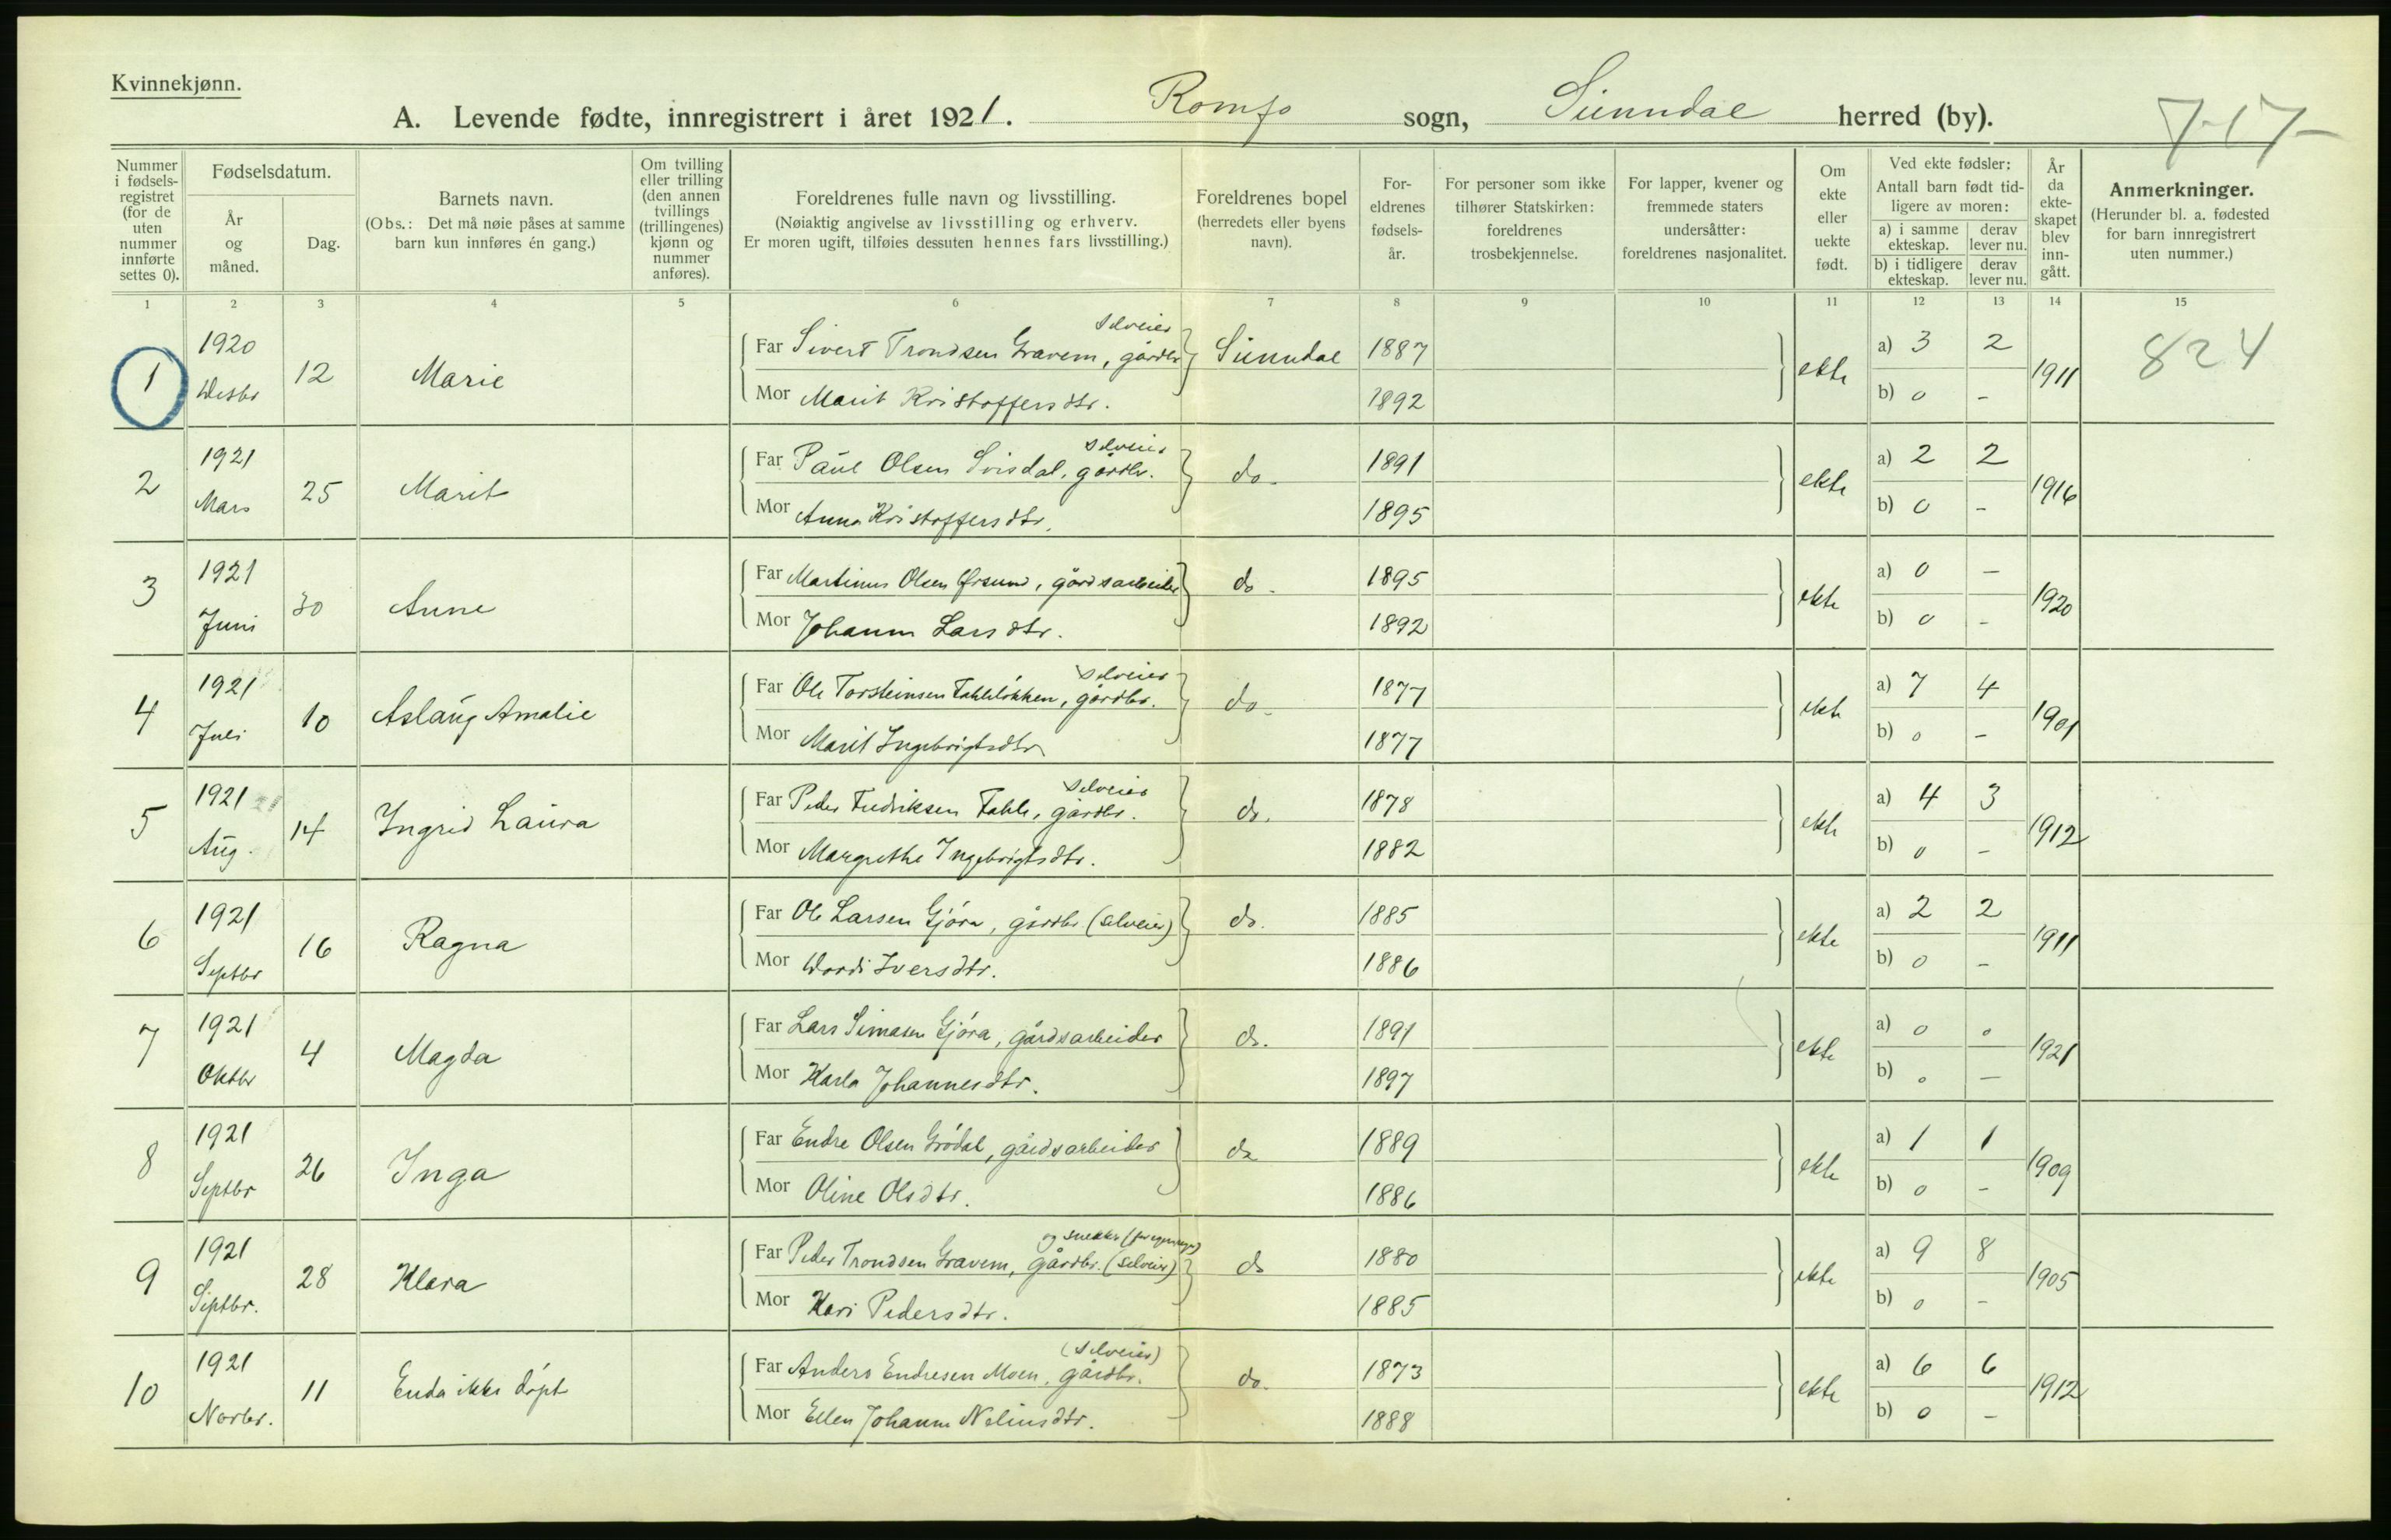 Kvinnekjønn.
A. Levende fødte, innregistrert i året 1921. Romfo sogn, Sunndal herred (by).
7-17-
Nummer i fødsels-registret (for de uten nummer innførte settes 0).
Fødselsdatum.
År og måned.
Dag.
Barnets navn.
(Obs.: Det må nøie påses at samme barn kun innføres én gang.)
Om tvilling eller trilling (den annen tvillings (trillingenes) kjønn og nummer anføres).
Foreldrenes fulle navn og livsstilling.
(Nøiaktig angivelse av livsstilling og erhverv.
Er moren ugift, tilføies dessuten hennes fars livsstilling.)
Foreldrenes bopel (herredets eller byens navn).
For-eldrenes fødsels-år.
For personer som ikke tilhører Statskirken: foreldrenes trosbekjennelse.
For lapper, kvener og fremmede staters undersåtter: foreldrenes nasjonalitet.
Om ekte eller uekte født.
Ved ekte fødsler:
Antall barn født tid-ligere av moren:
a) i samme ekteskap.
derav lever nu.
b) i tidligere ekteskap.
derav lever nu.
År da ekte-skapet blev inn-gått.
Anmerkninger.
(Herunder bl. a. fødested for barn innregistrert uten nummer.)
1 2 3 4 5 6 7 8 9 10 11 12 13 14 15
1 1920 Desbr 12 Marie
Far Sivert Trondsen Gravem, gårdbr selveier Sunndal 1887
Mor Marit Kristoffersdtr. 1892
ekte a) 3 2 b) 0 - 1911 824
2 1921 Mars 25 Marit
Far Paul Olsen Svisdal, gårdbr. selveier do. 1891
Mor Anna Kristoffersdtr. 1895
ekte a) 2 2 b) 0 - 1916
3 1921 Juni 30 Anne
Far Martinus Olsen Ørsund, gårdsarbeider do. 1895
Mor Johanne Larsdtr. 1892
ekte a) 0 - b) 0 - 1920
4 1921 Juli 10 Aslaug Amalie
Far Ole Torsteinsen Fahleløkken, gårdbr. selveier do. 1877
Mor Marit Ingebrigtsdtr 1877
ekte a) 7 4 b) 0 - 1901
5 1921 Aug. 14 Ingrid Laura
Far Peder Fredriksen Fahle, gårdbr. selveier do. 1878
Mor Margrethe Ingebrigtsdtr. 1882
ekte a) 4 3 b) 0 - 1912
6 1921 Septbr 16 Ragna
Far Ole Larsen Gjøra, gårdbr (selveier) do. 1885
Mor Dordi Iversdtr. 1886
ekte a) 2 2 b) 0 - 1911
7 1921 Oktbr 4 Magda
Far Lars Simasen Gjøra, gårdsarbeider do. 1891
Mor Karla Johannesdtr. 1897
ekte a) 0 0 b) 0 - 1921
8 1921 Septbr 26 Inga
Far Endre Olsen Grødal, gårdsarbeider do 1889
Mor Oline Olsdtr. 1886
ekte a) 1 1 b) 0 - 1909
9 1921 Septbr. 28 Klara
Far Peder Trondsen Gravem, gårdbr. (selveier) og snekker do 1880
Mor Kari Pedersdtr. 1885
ekte a) 9 8 b) 0 - 1905
10 1921 Novbr. 11 Enda ikke døpt
Far Anders Endresen Moen, gårdbr. (selveier) do. 1873
Mor Ellen Johanne Neliusdtr. 1888
ekte a) 6 6 b) 0 - 1912